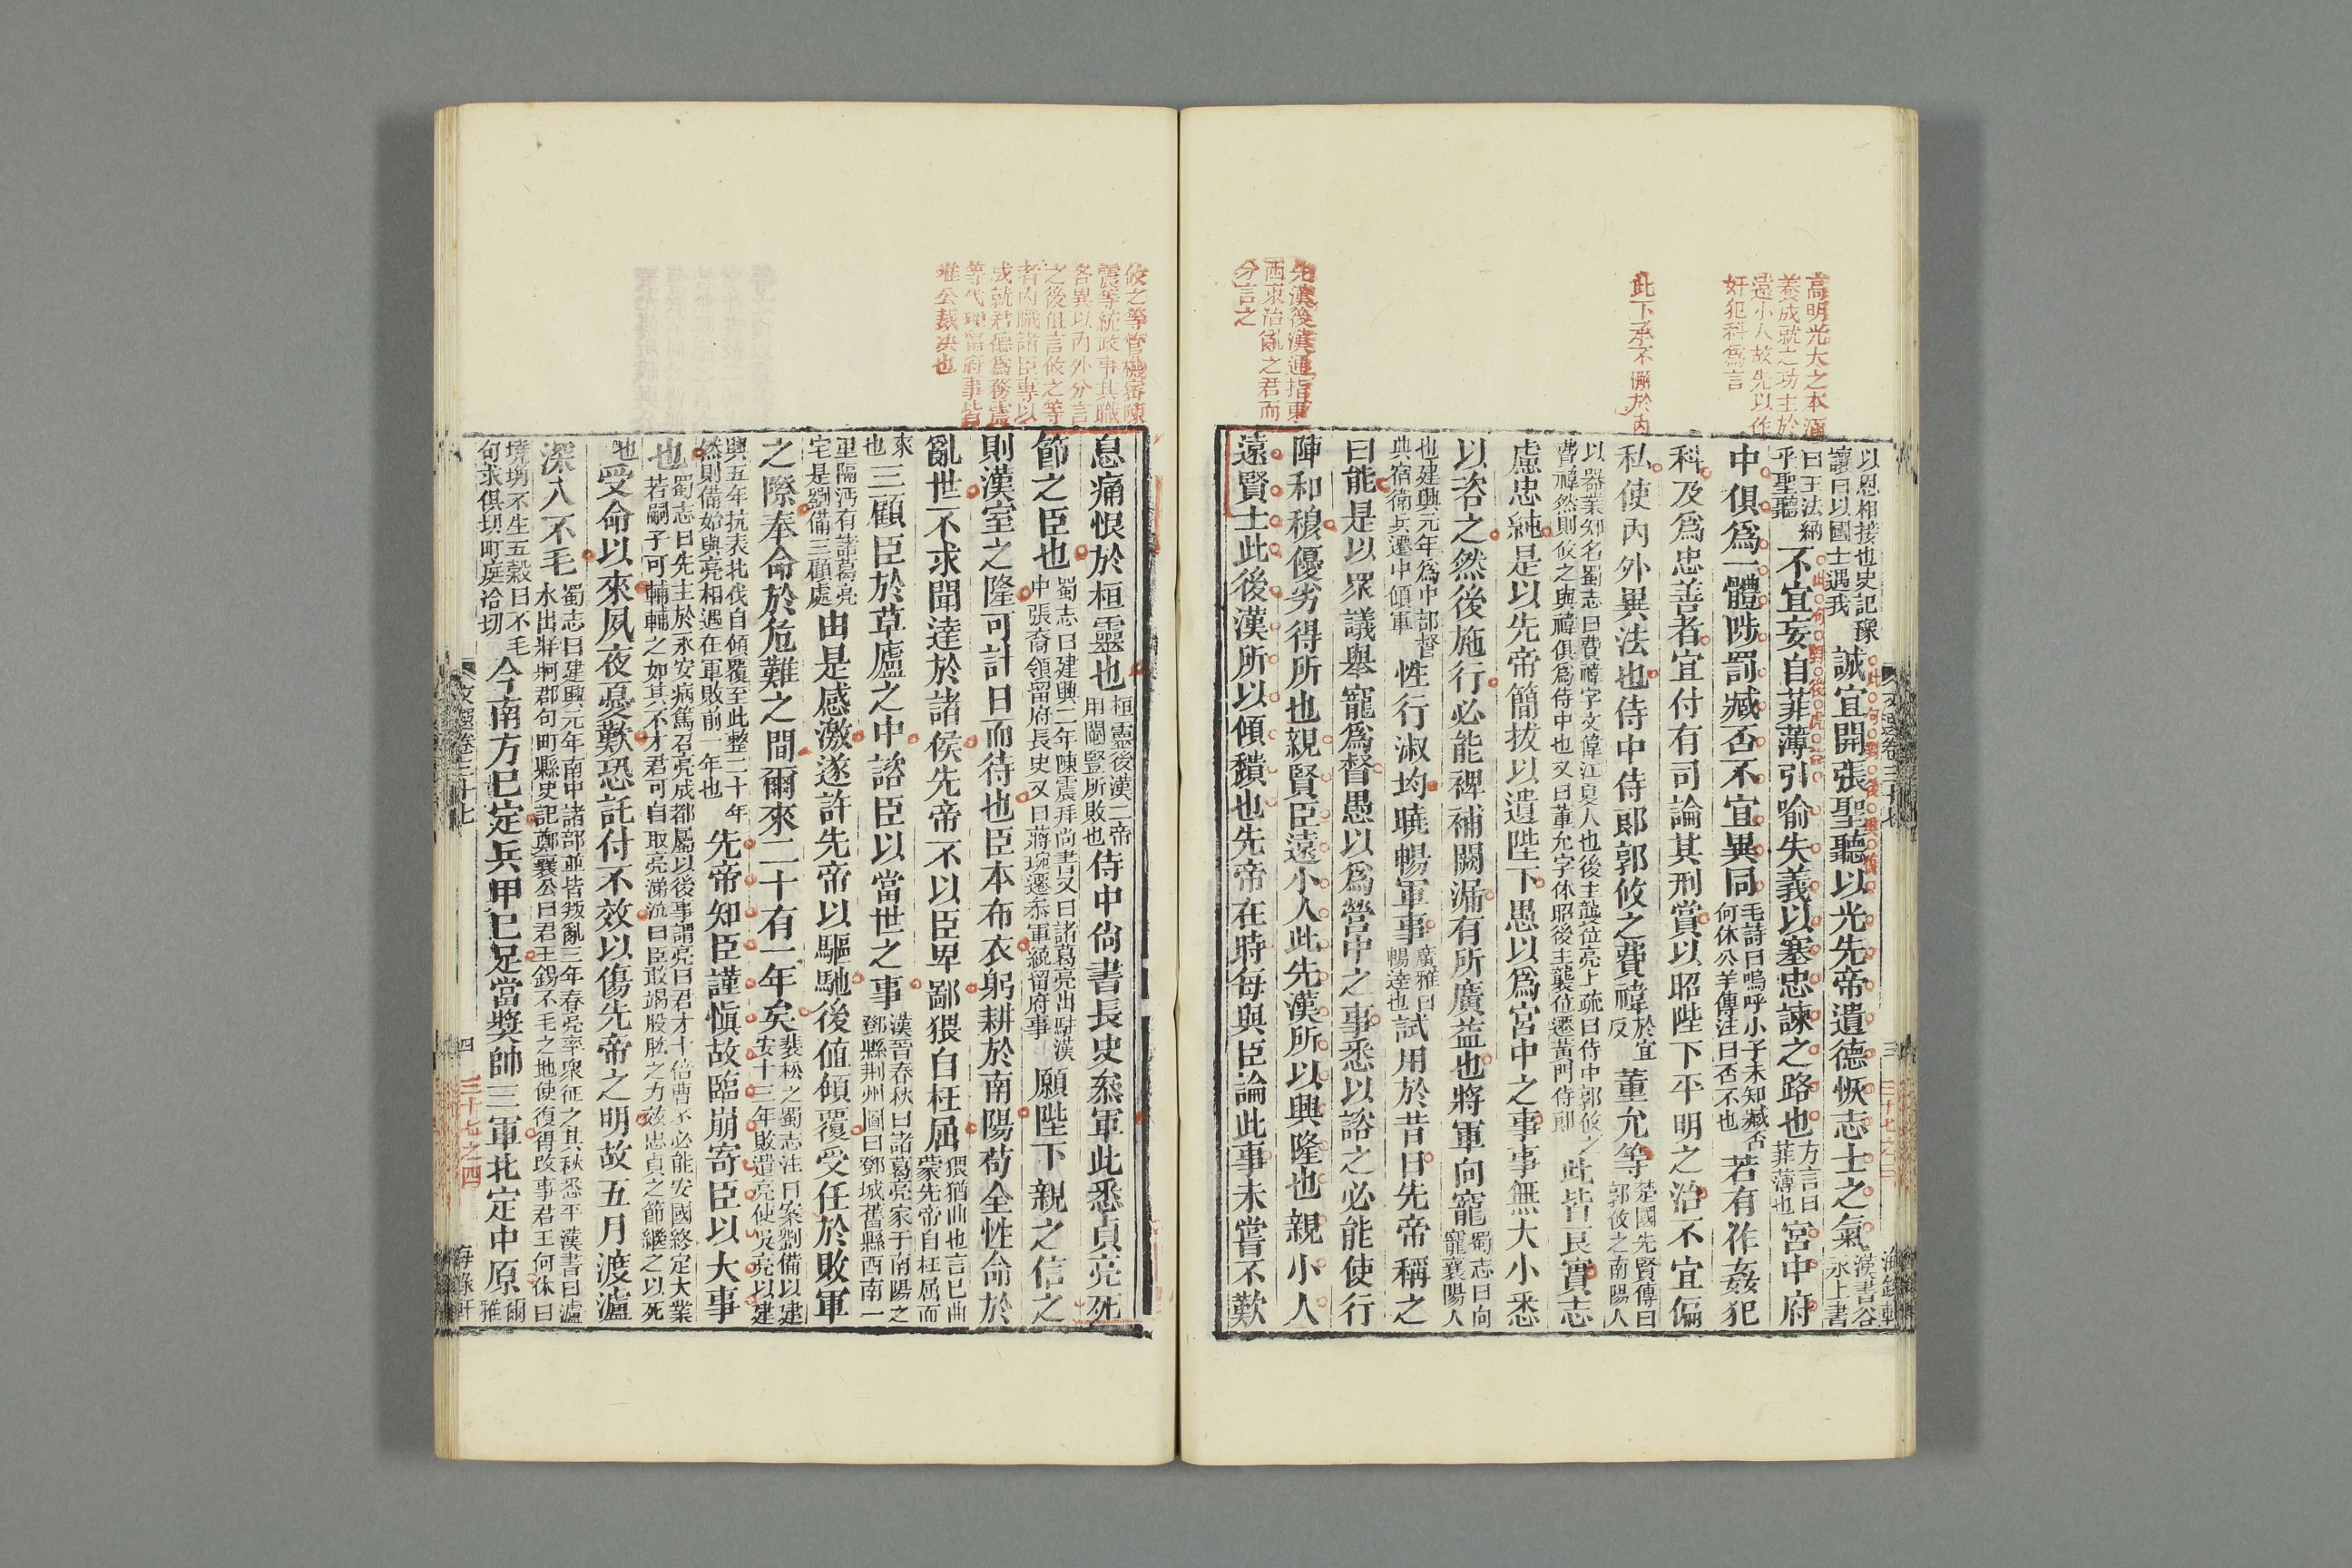 高明光大之本涵
養成就之功主於
遠小人故先以作
奸犯科爲言
此下承不懈於內
先漢後漢通指東
西京治亂之君而
分言之
文選卷三十七 三 三十七之三 海錄軒
以恩相接也史記豫讓曰以國士遇我誠宜開張聖聽以光先帝遺德恢志士之氣漢書谷永上書
曰王法納乎聖聽不宜妄自菲薄引喻失義以塞忠諫之路也方言曰菲薄也宮中府
中俱爲一體陟罰臧否不宜異同毛詩曰嗚呼小子未知臧否何休公羊傳注曰否不也若有作姦犯
科及爲忠善者宜付有司論其刑賞以昭陛下平明之治不宜偏
私使內外異法也侍中侍郎郭攸之費禕於宜反董允等楚國先賢傳曰郭攸之南陽人
以器業知名蜀志曰費禕字文偉江夏人也後主襲位亮上疏曰侍中郭攸之費禕然則攸之與禕俱爲侍中也又曰董允字休昭後主襲位遷黃門侍郎此皆良實志
慮忠純是以先帝簡拔以遺陛下愚以爲宮中之事事無大小悉
以咨之然後施行必能裨補闕漏有所廣益也將軍向寵蜀志曰向寵襄陽人
也建興元年爲中部督典宿衛兵遷中領軍性行淑均曉暢軍事廣雅曰暢達也試用於昔日先帝稱之
曰能是以眾議舉寵爲督愚以爲營中之事悉以諮之必能使行
陣和穆優劣得所也親賢臣遠小人此先漢所以興隆也親小人
遠賢士此後漢所以傾穨也先帝在時每與臣論此事未嘗不歎
攸之等管機密陳
震等統政事其職
各異以內外分言
之後但言攸之等
者內職諸臣專以
成就君德爲務震
等代理留府事皆
進公裁決也
息痛恨於桓靈也桓靈後漢二帝用閹豎所敗也侍中尚書長史叅軍此悉貞亮死
節之臣也蜀志曰建興二年陳震拜尚書又曰諸葛亮出駐漢中張裔領留府長史又曰蔣琬遷叅軍統留府事願陛下親之信之
則漢室之隆可計日而待也臣本布衣躬耕於南陽苟全性命於
亂世不求聞達於諸侯先帝不以臣卑鄙猥自枉屈猥猶曲也言已曲蒙先帝自枉屈而
來也三顧臣於草廬之中諮臣以當世之事漢晉春秋曰諸葛亮家于南陽之鄧縣荆州圖曰鄧城舊縣西南一
里隔沔有諸葛亮宅是劉備三顧處由是感激遂許先帝以驅馳後値傾覆受任於敗軍
之際奉命於危難之間爾來二十有一年矣裴松之蜀志注曰案劉備以建安十三年敗遣亮使吳亮以建
興五年抗表北伐自傾覆至此整二十年然則備始與亮相遇在軍敗前一年也先帝知臣謹慎故臨崩寄臣以大事
也蜀志曰先主於永安病篤召亮成都屬以後事謂亮曰君才十倍曹丕必能安國終定大業若嗣子可輔輔之如其不才君可自取亮涕泣曰臣敢竭股肱之力效忠貞之節繼之以死
也受命以來夙夜憂歎恐託付不效以傷先帝之明故五月渡瀘
深入不毛蜀志曰建興元年南中諸部並皆叛亂三年春亮率衆征之其秋悉平漢書曰瀘水出牂牁郡句町縣史記鄭襄公曰君王錫不毛之地使復得改事君王何休曰
墝埆不生五穀曰不毛句求俱切町庭冾切今南方已定兵甲已足當奬帥三軍北定中原爾雅
文選卷三十七 四 三十七之四 海錄軒